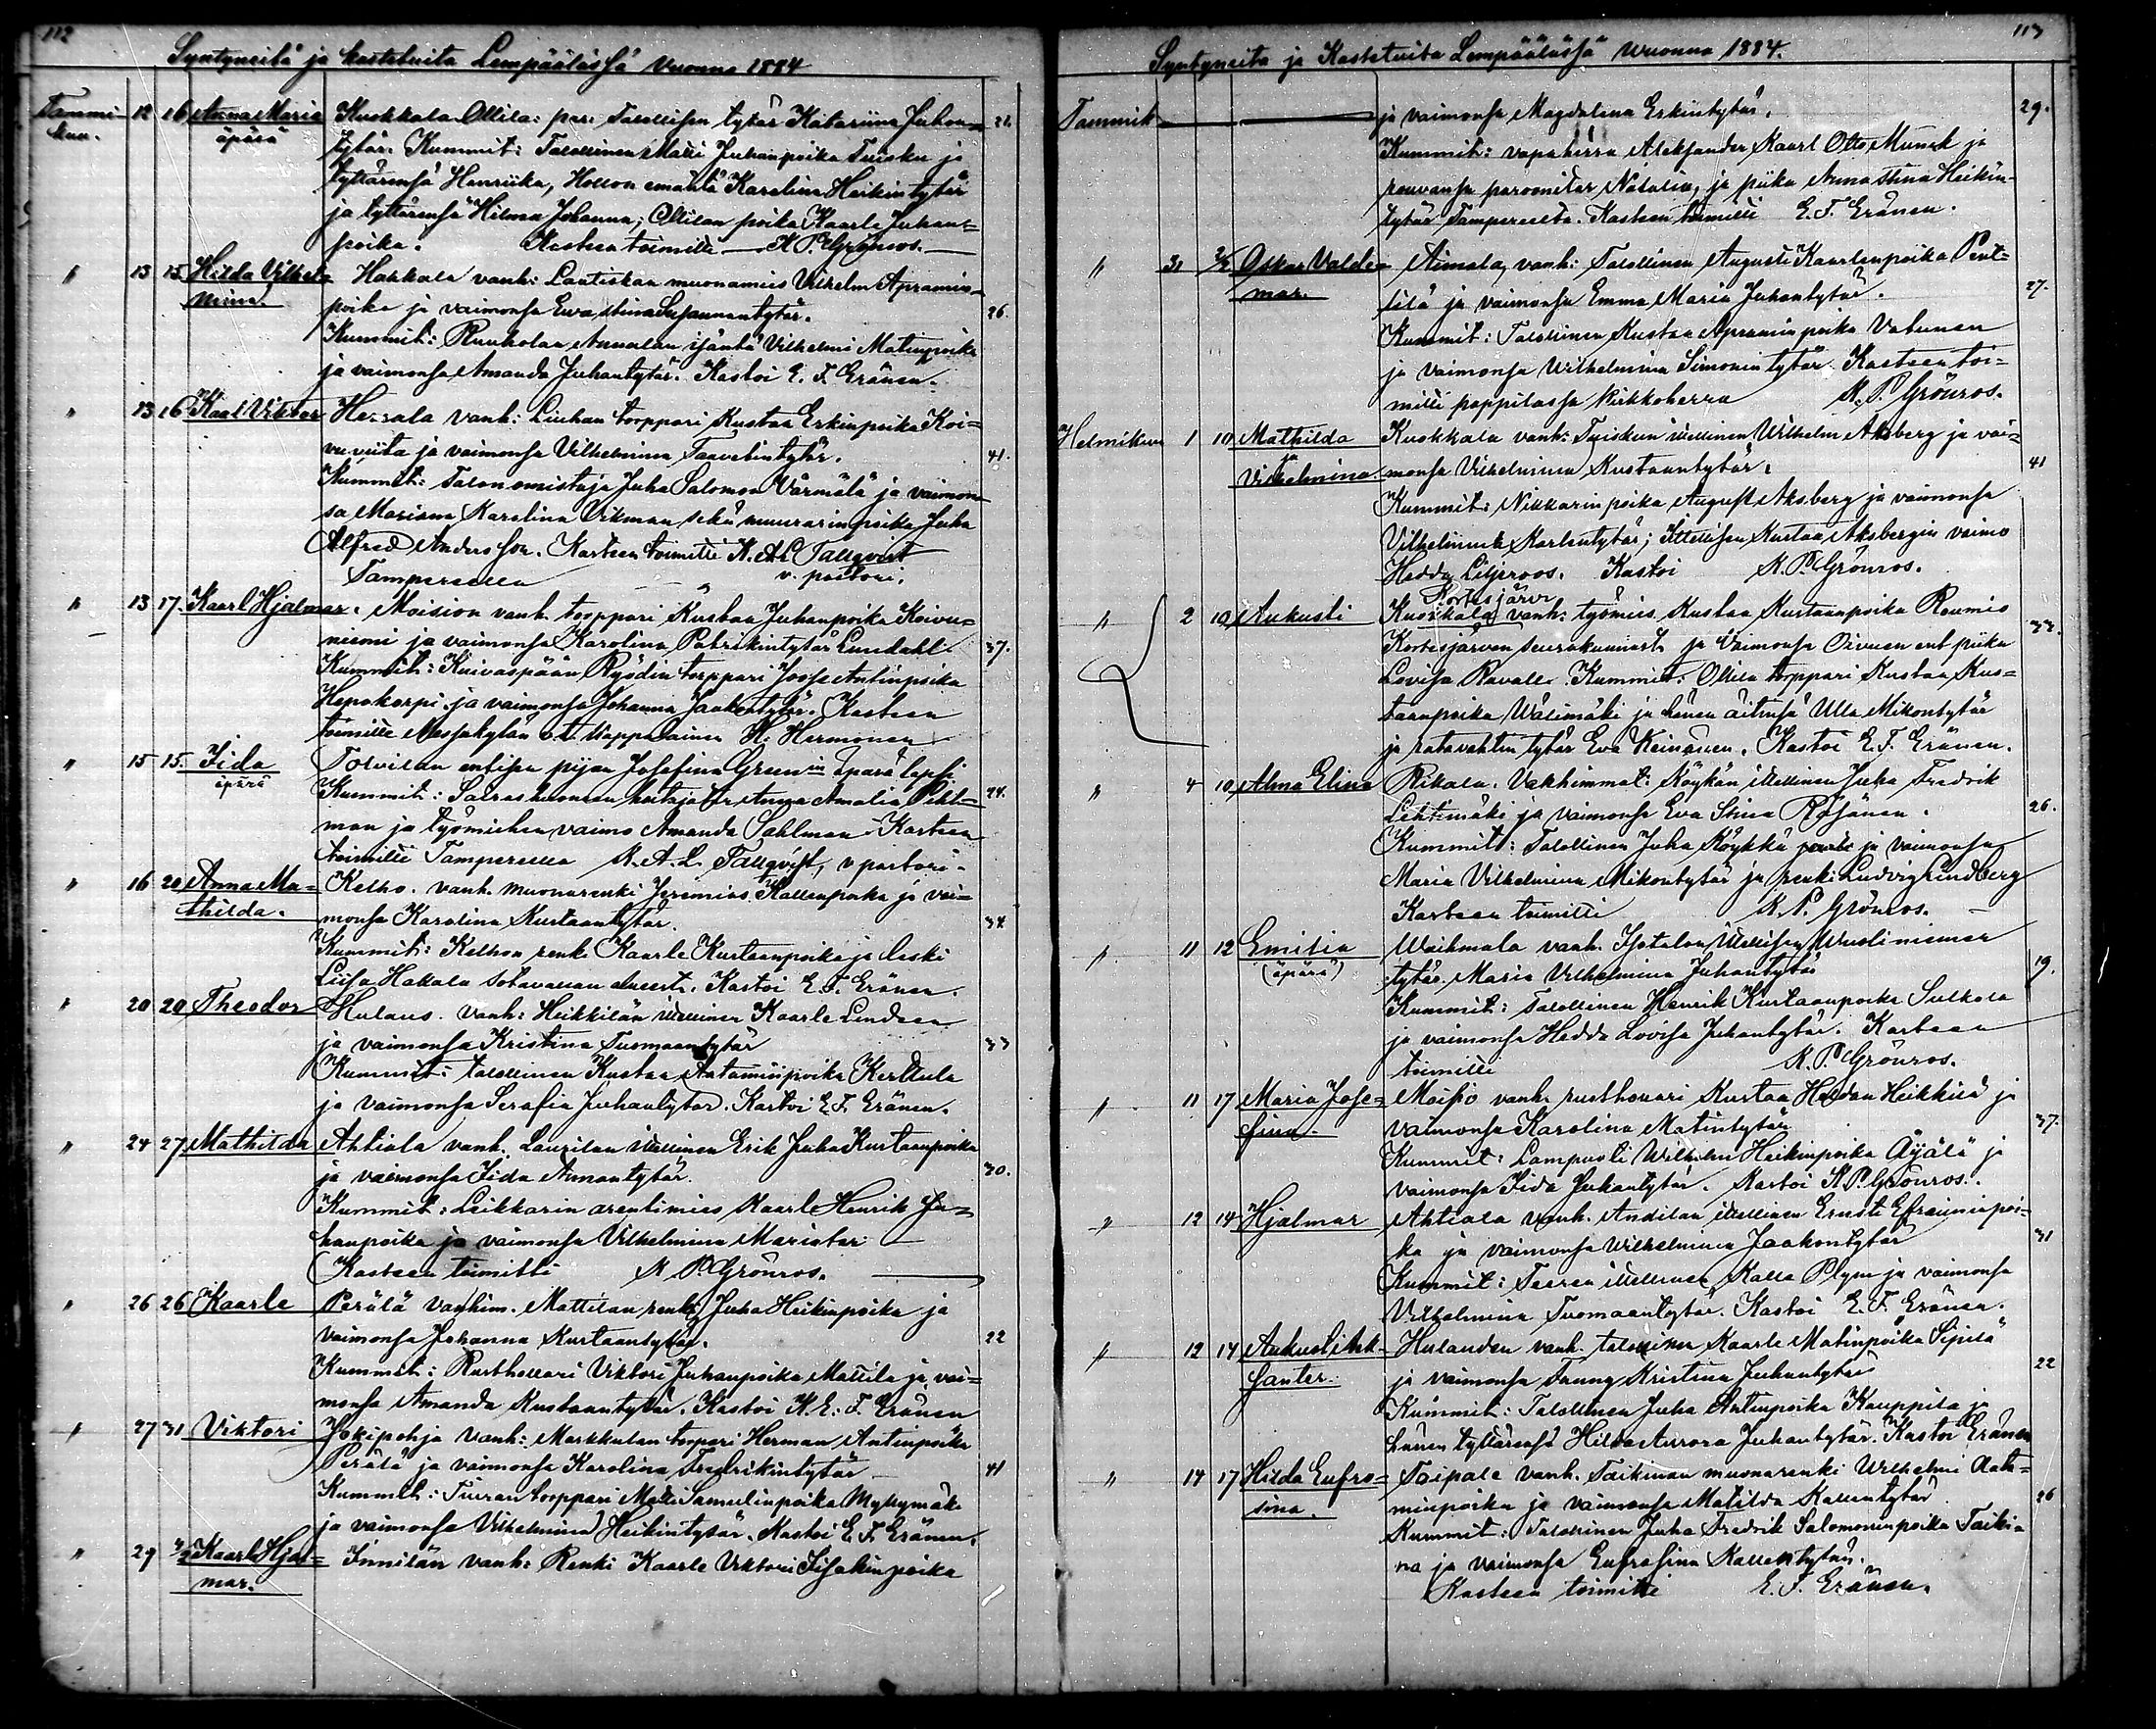 112
Syntyneitä ja kastetuita Lempäälässä Vuonna 1884
Tammi- 12 16 Anna Maria Kuokkala Ollila: par. Talollisen tytär Katariina Juhan- 21.
kuu. äpärä tytär. Kummit: Talollinen Matti Juhanpoika Tuisku ja
tyttärensä Henriika, Hollon emäntä Karolina Heikintytär
ja tyttärensä Hilma Johanna; Ollilan poika Kaarle Juhan-
poika. Kasteen toimitti K. P. Grönros.
" 13 15 Hilda Vilhel- Hakkala vanh: Lautiskan muonamies Vilhelm Apramin-
mina. poika ja vaimonsa Eva Stina Susannantytär. 26.
Kummit: Ruuholan Annalan isäntä Vilhelmi Matinpoika
ja vaimonsa Amanda Juhantytär. Kastoi E. F. Eränen.
" 13 16 Kaarl Viktor Herrala vanh: Liuhan torppari Kustaa Erkinpoika Koi-
vuviita ja vaimonsa Vilhelmina Taavetintytär. 41.
Kummit: Talon omistaja Juha Salomon Värmälä ja vaimon-
sa Mariana Karolina Vikman sekä muurarinpoika Juha
Alfred Andersson. Kasteen toimitti K. A. L. Tallqvist
Tampereella v. pastori.
" 13 17. Kaarl Hjalmar. Moision vanh. torppari Kustaa Juhanpoika Koivu-
niemi ja vaimonsa Karolina Patrikintytär Lundahl. 37.
Kummit: Kuivaspään Rysödin torppari Joose Antinpoika
Hepokorpi ja vaimonsa Johanna Jaakontytär. Kasteen
toimitti Messukylän v.t. kappalainen H. Hermonen
" 15 15. Iida Torvilan entisen piian Josefina Green in äpärä lapsi
äpärä Kummit: Anna Amalia Pihl- 24.
man ja työmiehen vaimo Amanda Sahlman. Kasteen
toimitti Tampereella K. A. L. Tallqvist, v pastori.
" 16 20 Anna Ma- Kelho. vanh. muonarenki Jeremias Kallenpoika ja vai-
thilda. monsa Karolina Kustaantytär. 34.
Kummit: Kelhon renki Kaarle Kustaanpoika ja leski
Liisa Hakala Kastoi E. F. Eränen.
" 20 20 Theodor Hulaus. vanh: Heikkilän itsellinen Kaarle Lindeen
ja vaimonsa Kristina Tuomaantytär 33
Kummit: talollinen Kustaa Aataminpoika Kerttula
ja vaimonsa Serafia Juhantytär. Kastoi E. F. Eränen.
" 24 27 Mathilda Ahtiala vanh. Laurilan itsellinen Erik Juha Kustaanpoika
ja vaimonsa Iida Annantytär. 30.
Kummit: Leikkarin arentimies Kaarle Henrik Ju-
hanpoika ja vaimonsa Vilhelmina Mariatar
Kasteen toimitti K. P. Grönros.
" 26 26 Kaarle Perälä vanhim. Mattilan renki Juha Heikinpoika ja
vaimonsa Johanna Kustaantytär. 22
Kummit: Rusthollari Viktori Juhanpoika Mattila ja vai-
monsa Amanda Kustaantytär. Kastoi K. E. F. Eränen
" 27 31 Viktori Jokipohja vanh: Markkulan torpari Herman Antinpoika
Perälä ja vaimonsa Karolina Fredrikintytär 41
Kummit: Tiuran torppari Matti Samulinpoika Myllymäki
ja vaimonsa Vilhelmina Heikintytär. Kastoi E. F. Eränen.
" 29 2/2 Kaarle Hjal- Innilän vanh: Renki Kaarle Viktori Iisakinpoika
mar.
113
Syntyneitä ja Kastetuita Lempäälässä Vuonna 1884.
Tammik ja vaimonsa Magdalena Erkintytär. 29.
Kummit: vapaherra Aleksander Kaarl Otto Munck ja
rouvansa paroonitar Natalia, ja piika Anna Stina Heikin-
tytär Tampereelta. Kasteen toimitti E. F. Eränen.
" 31 2/2 Oskar Valde- Aimala, vanh: Talollinen Augusti Kaarlenpoika Pent-
mar. tilä ja vaimonsa Emma Maria Juhantytär. 27.
Kummit: Talollinen Kustaa Apraminpoika Vatanen
ja vaimonsa Wilhelmina Simonintytär. Kasteen toi-
mitti pappilassa kirkkoherra K. P. Grönros.
Helmikuu 1 10 Mathilda Kuokkala vanh: Tuiskun itsellinen Wilhelm Aksberg ja vai-
ja Vilhelmina monsa Vilhelmina Kustaantytär. 41
Kummit: Nikkarinpoika August Aksberg ja vaimonsa
Vilhelmina Karlentytär; Itsellisen Kustaa Aksbergin vaimo
Hedda Liljeroos. Kastoi K. P. Grönros.
Kortesjärvi
" 2 10 Aukusti Kuokkala vanh: työmies Kustaa Kustaanpoika Raumio 33.
Kortesjärven seurakunnast ja Vaimonsa Oivuen ent piika
Lovisa Ravall. Kummit: Ollila torppari Kustaa Kus-
taanpoika Wälimäki ja hänen äitinsä Ulla Mikontytär
ja ratavahtin tytär Eva Keinänen. Kastoi E. F. Eränen.
" 4 10 Alma Elina Rikala. Vanhimmat: Köykän itsellinen Juha Fredrik
Lehtimäki ja vaimonsa Eva Stina Röhänen. 26.
Kummit: Talollinen Juha Köykkä ja vaimonsa
Maria Vilhelmina Mikontytär ja renki Ludvig Lindberg
Kasteen toimitti K. P. Grönros.
" 11 12 Emilia Waihmala vanh. Isotalon itsellisen Wuoliniemen
(äpärä) tytär Maria Vilhelmina Juhantytär 19.
Kummit: Talollinen Henrik Kustaanpoika Sulkola
ja vaimonsa Hedda Lovisa Juhantytär. Kasteen
toimitti K. P. Grönros.
" 11 17 Maria Jose- Moisio vanh. rusthollari Kustaa Heikkilä ja
fina. vaimonsa Karolina Matintytär 37.
Kummit: Lampuoti Wilhelmi Heikinpoika Äijälä ja
vaimonsa Iida Juhantytär. Kastoi K. P. Grönros.
" 12 14 Hjalmar Ahtiala vanh. Andilan itsellinen Ernsti Efraiminpoi-
ka ja vaimonsa Wilhelmina Jaakontytär 31
Kummit: itsellinen Kalle Plym ja vaimonsa
Vilhelmina Tuomaantytär. Kastoi E. F. Eränen.
" 12 14 Aukusti Alek- Hulauden vanh. talollinen Kaarle Matinpoika Sipilä
santer. ja vaimonsa Fanny Kristina Juhantytär 22
Kummit: Talollinen Juha Antinpoika Kauppila ja
hänen tyttärensä Hilda Aurora Juhantytär. Kastoi Eränen
" 14 17 Hilda Eufro- Taipale vanh. Taikinan muonarenki Wilhelmi Aata-
sina. minpoika ja vaimonsa Matilda Kallentytär 26
Kummit: Talollinen Juha Fredrik Salomoninpoika Taiki-
na ja vaimonsa Eufrosina Kallentytär.
Kasteen toimitti E. F. Eränen.